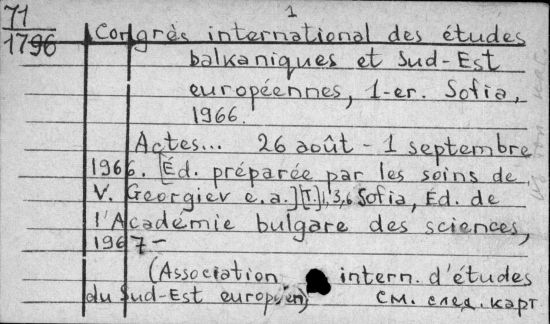 1
71
1796
Congrès international des études
balkaniques et Sud-Est
européennes, 1-er. Sofia,
1966.
Actes... 26 août - 1 septembre
1966. [Éd. préparée par les soins de
V. Georgiev e.a.] [T.] 1,3,6 Sofia, Éd. de
l'Académie bulgare des sciences,
1967-
(Association intern. d'études
du Sud-Est européen)
См. след. карт